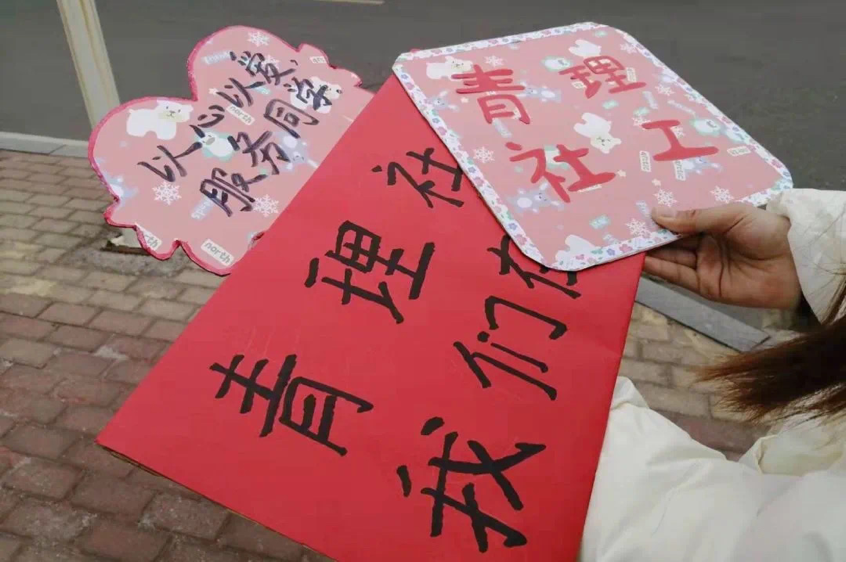 以心以爱,
服务同学
青理
社工
青理社
我们在
north